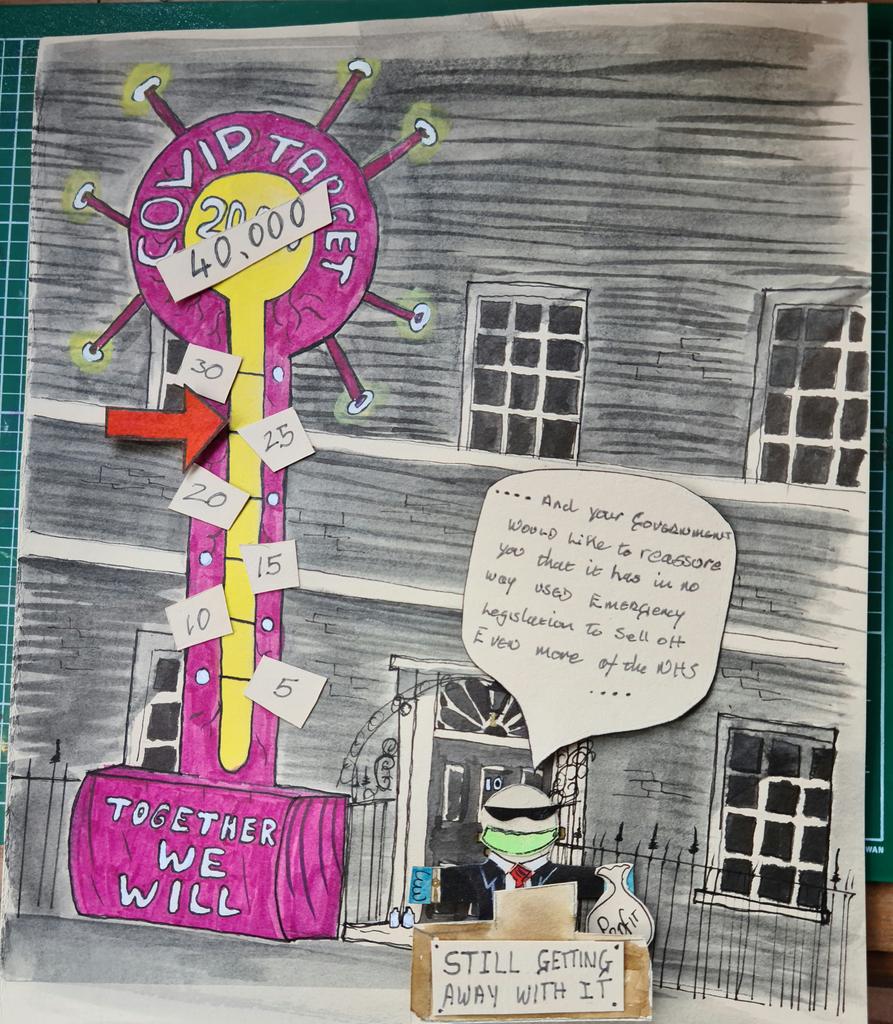 COVID TARGET
20
40,000
30
25
20
15
10
5
TOGETHER
WE
WILL
.... And your GOVERNMENT
WOULD like to reassure
you that it has in no
way USED EMERGENCY
legislation to Sell off
EVEN more of the NHS
....
10
Profit
STILL GETTING
AWAY WITH IT
WAN